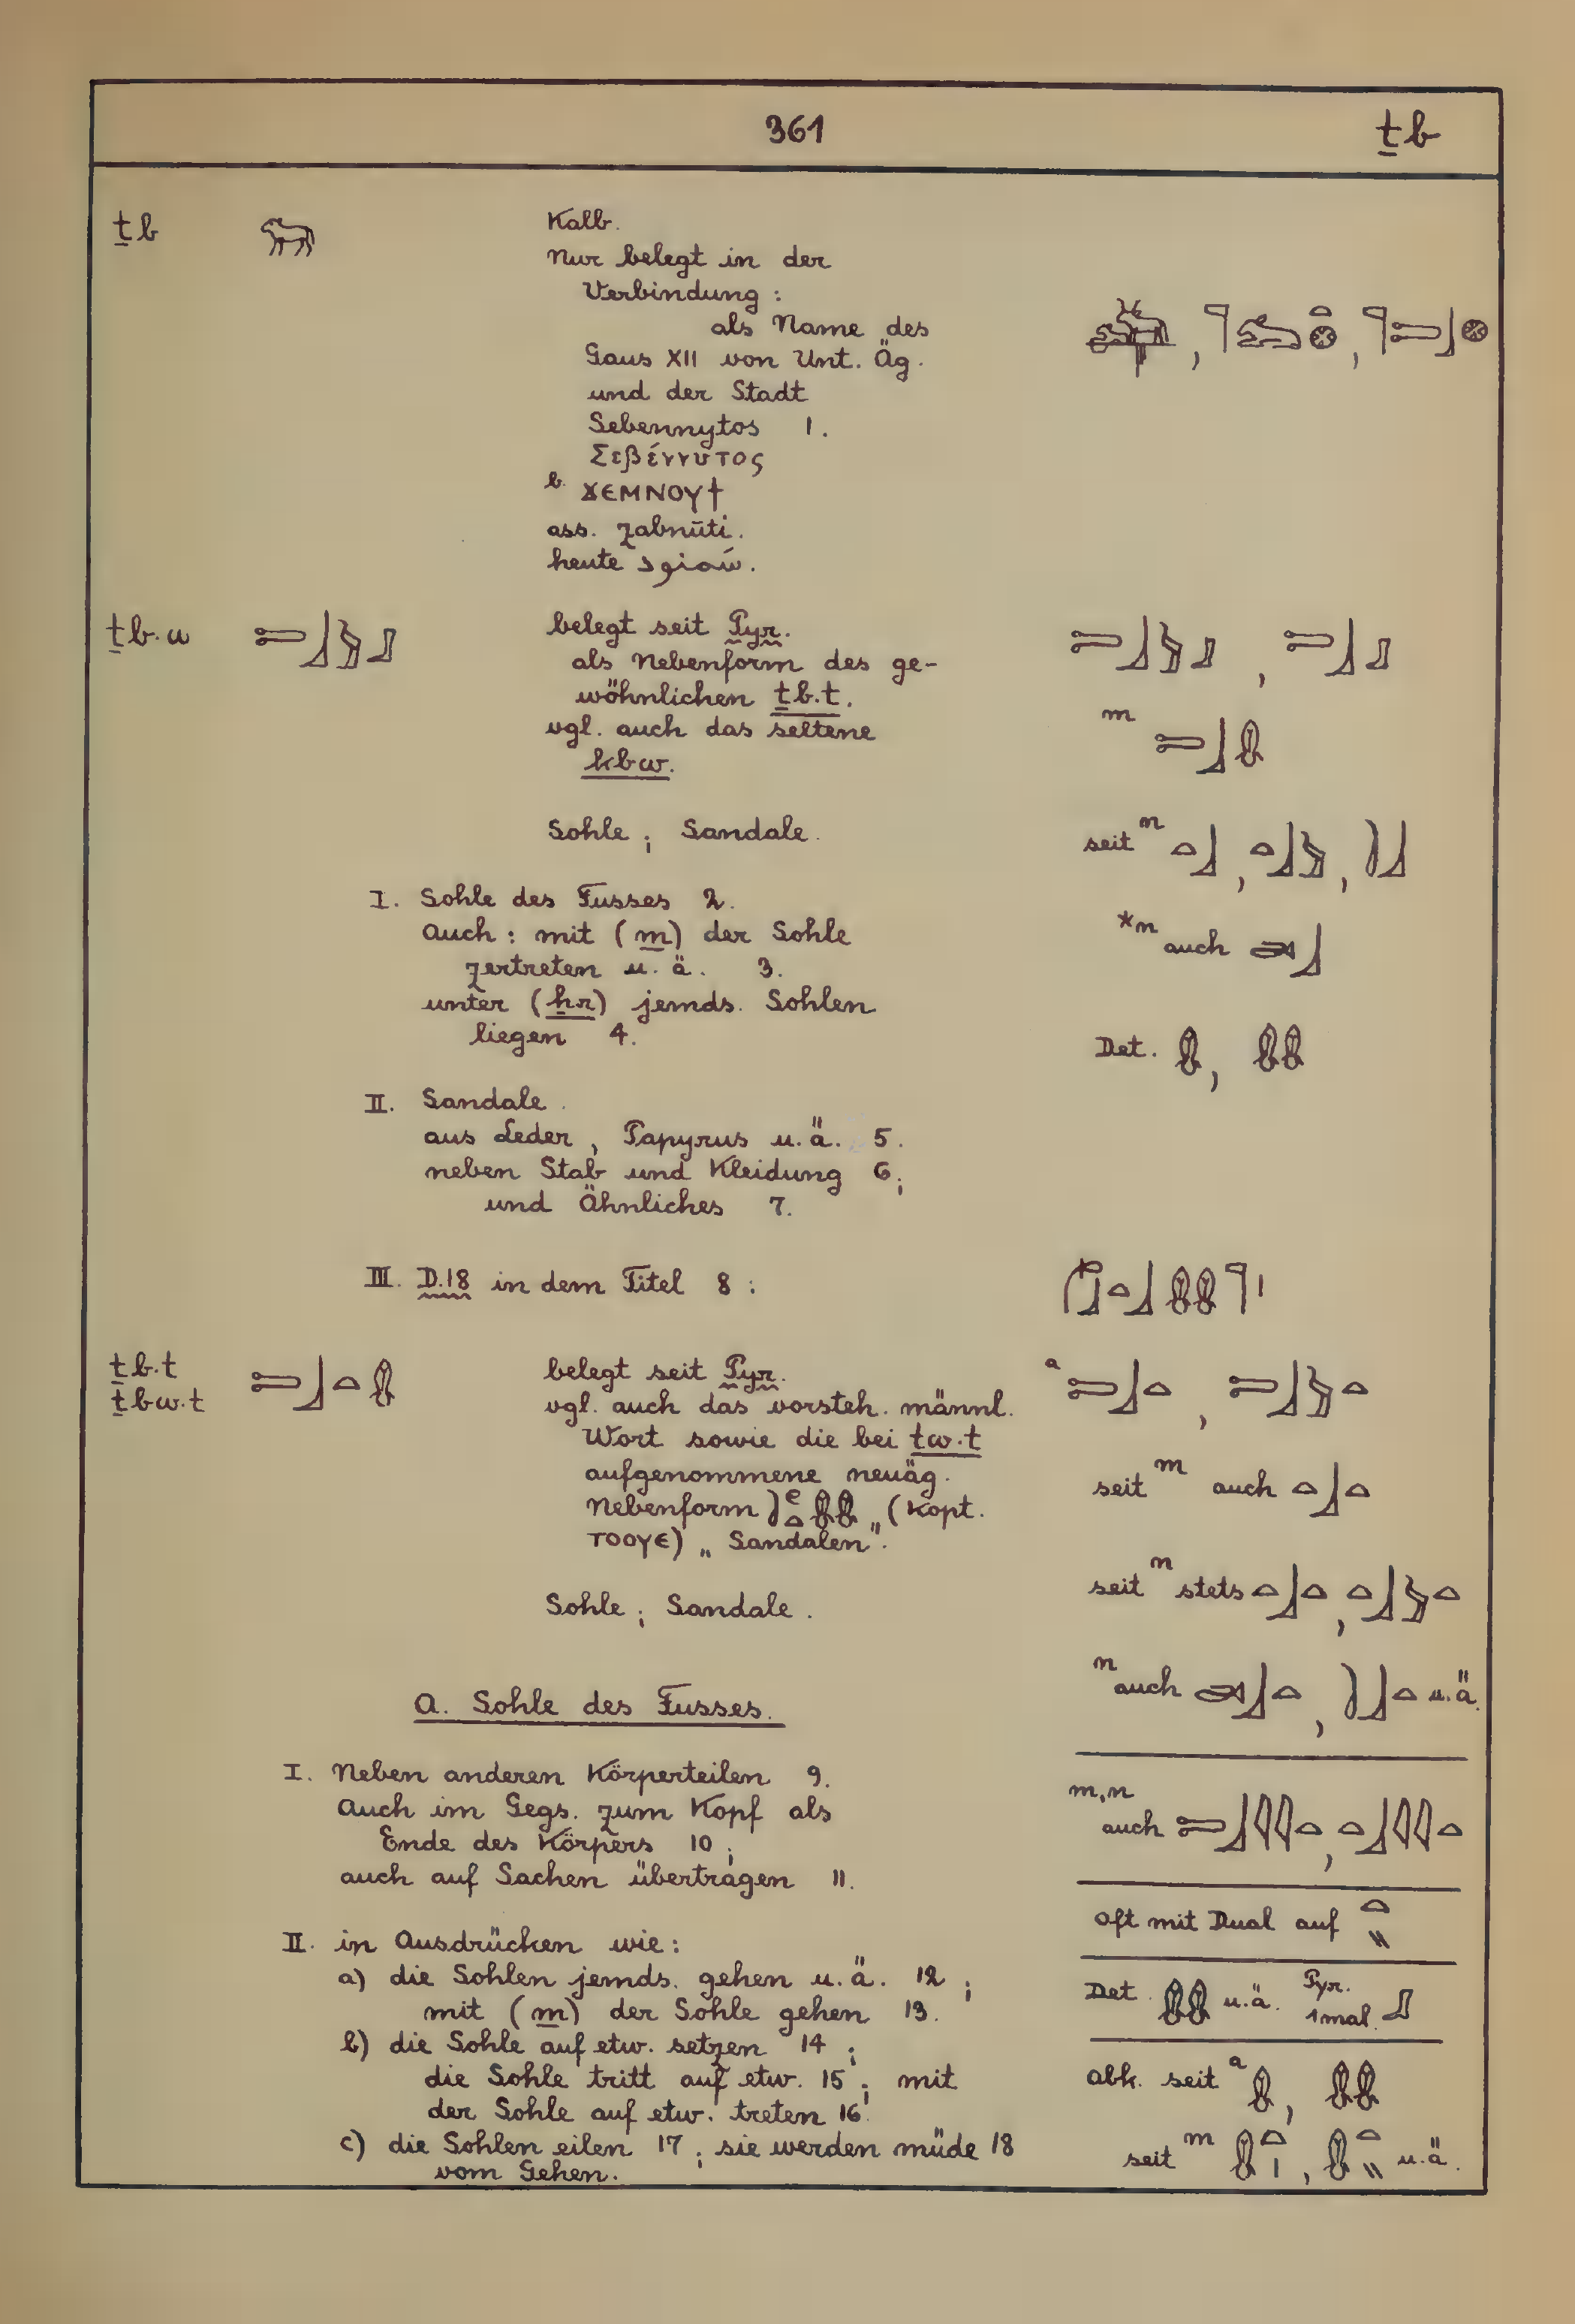 361
ṯb
ṯb
Kalb.
Nur belegt in der
Verbindung :
als Name des
Gaus XII von Unt. Äg.
und der Stadt
Sebennytos 1.
Σεβέννυτος
b. ϪΕΜΝΟΥϮ
ass. zabnūti.
heute
ṯb.w
belegt seit Pyr.
als Nebenform des ge-
wöhnlichen ṯb.t.
vgl. auch das seltene
kbw.
m
Sohle ; Sandale.
seit n
I. Sohle des Fusses 2.
Auch : mit (m) der Sohle
zertreten u. ä. 3.
*n auch
unter (ẖr) jemds. Sohlen
liegen 4.
Det.
II. Sandale.
aus Leder, Papyrus u. ä. 5.
neben Stab und Kleidung 6 ;
und Ähnliches 7.
III. D.18 in dem Titel 8 :
ṯb.t
ṯbw.t
belegt seit Pyr.
a
vgl. auch das vorsteh. männl.
Wort sowie die bei tw.t
aufgenommene neuäg.
Nebenform (Kopt.
ΤΟΟΥΕ) „Sandalen".
seit m auch
seit n stets
Sohle ; Sandale.
n auch u. ä.
A. Sohle des Fusses.
I. Neben anderen Körperteilen 9.
Auch im Gegs. zum Kopf als
Ende des Körpers 10 ;
auch auf Sachen übertragen 11.
m.n
auch
oft mit Dual auf
II. in Ausdrücken wie :
a) die Sohlen jemds. gehen u. ä. 12 ;
mit (m) der Sohle gehen 13.
Det. u. ä. Pyr.
1mal.
b) die Sohle auf etw. setzen 14 ;
die Sohle tritt auf etw. 15 ; mit
der Sohle auf etw. treten 16.
abk. seit a
c) die Sohlen eilen 17 ; sie werden müde 18
vom Gehen.
seit m u. ä.